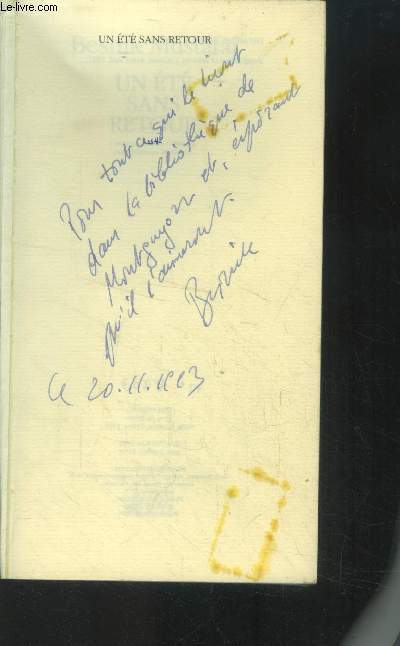 Le-livre.com
UN ÉTÉ SANS RETOUR
UN ÉTÉ
SANS
RETOUR
Pour tout ceux qui le liront
dans la bibliothèque de
Montguyon et, espérant
qu'il l'aimeront.
Le 20.11.1993